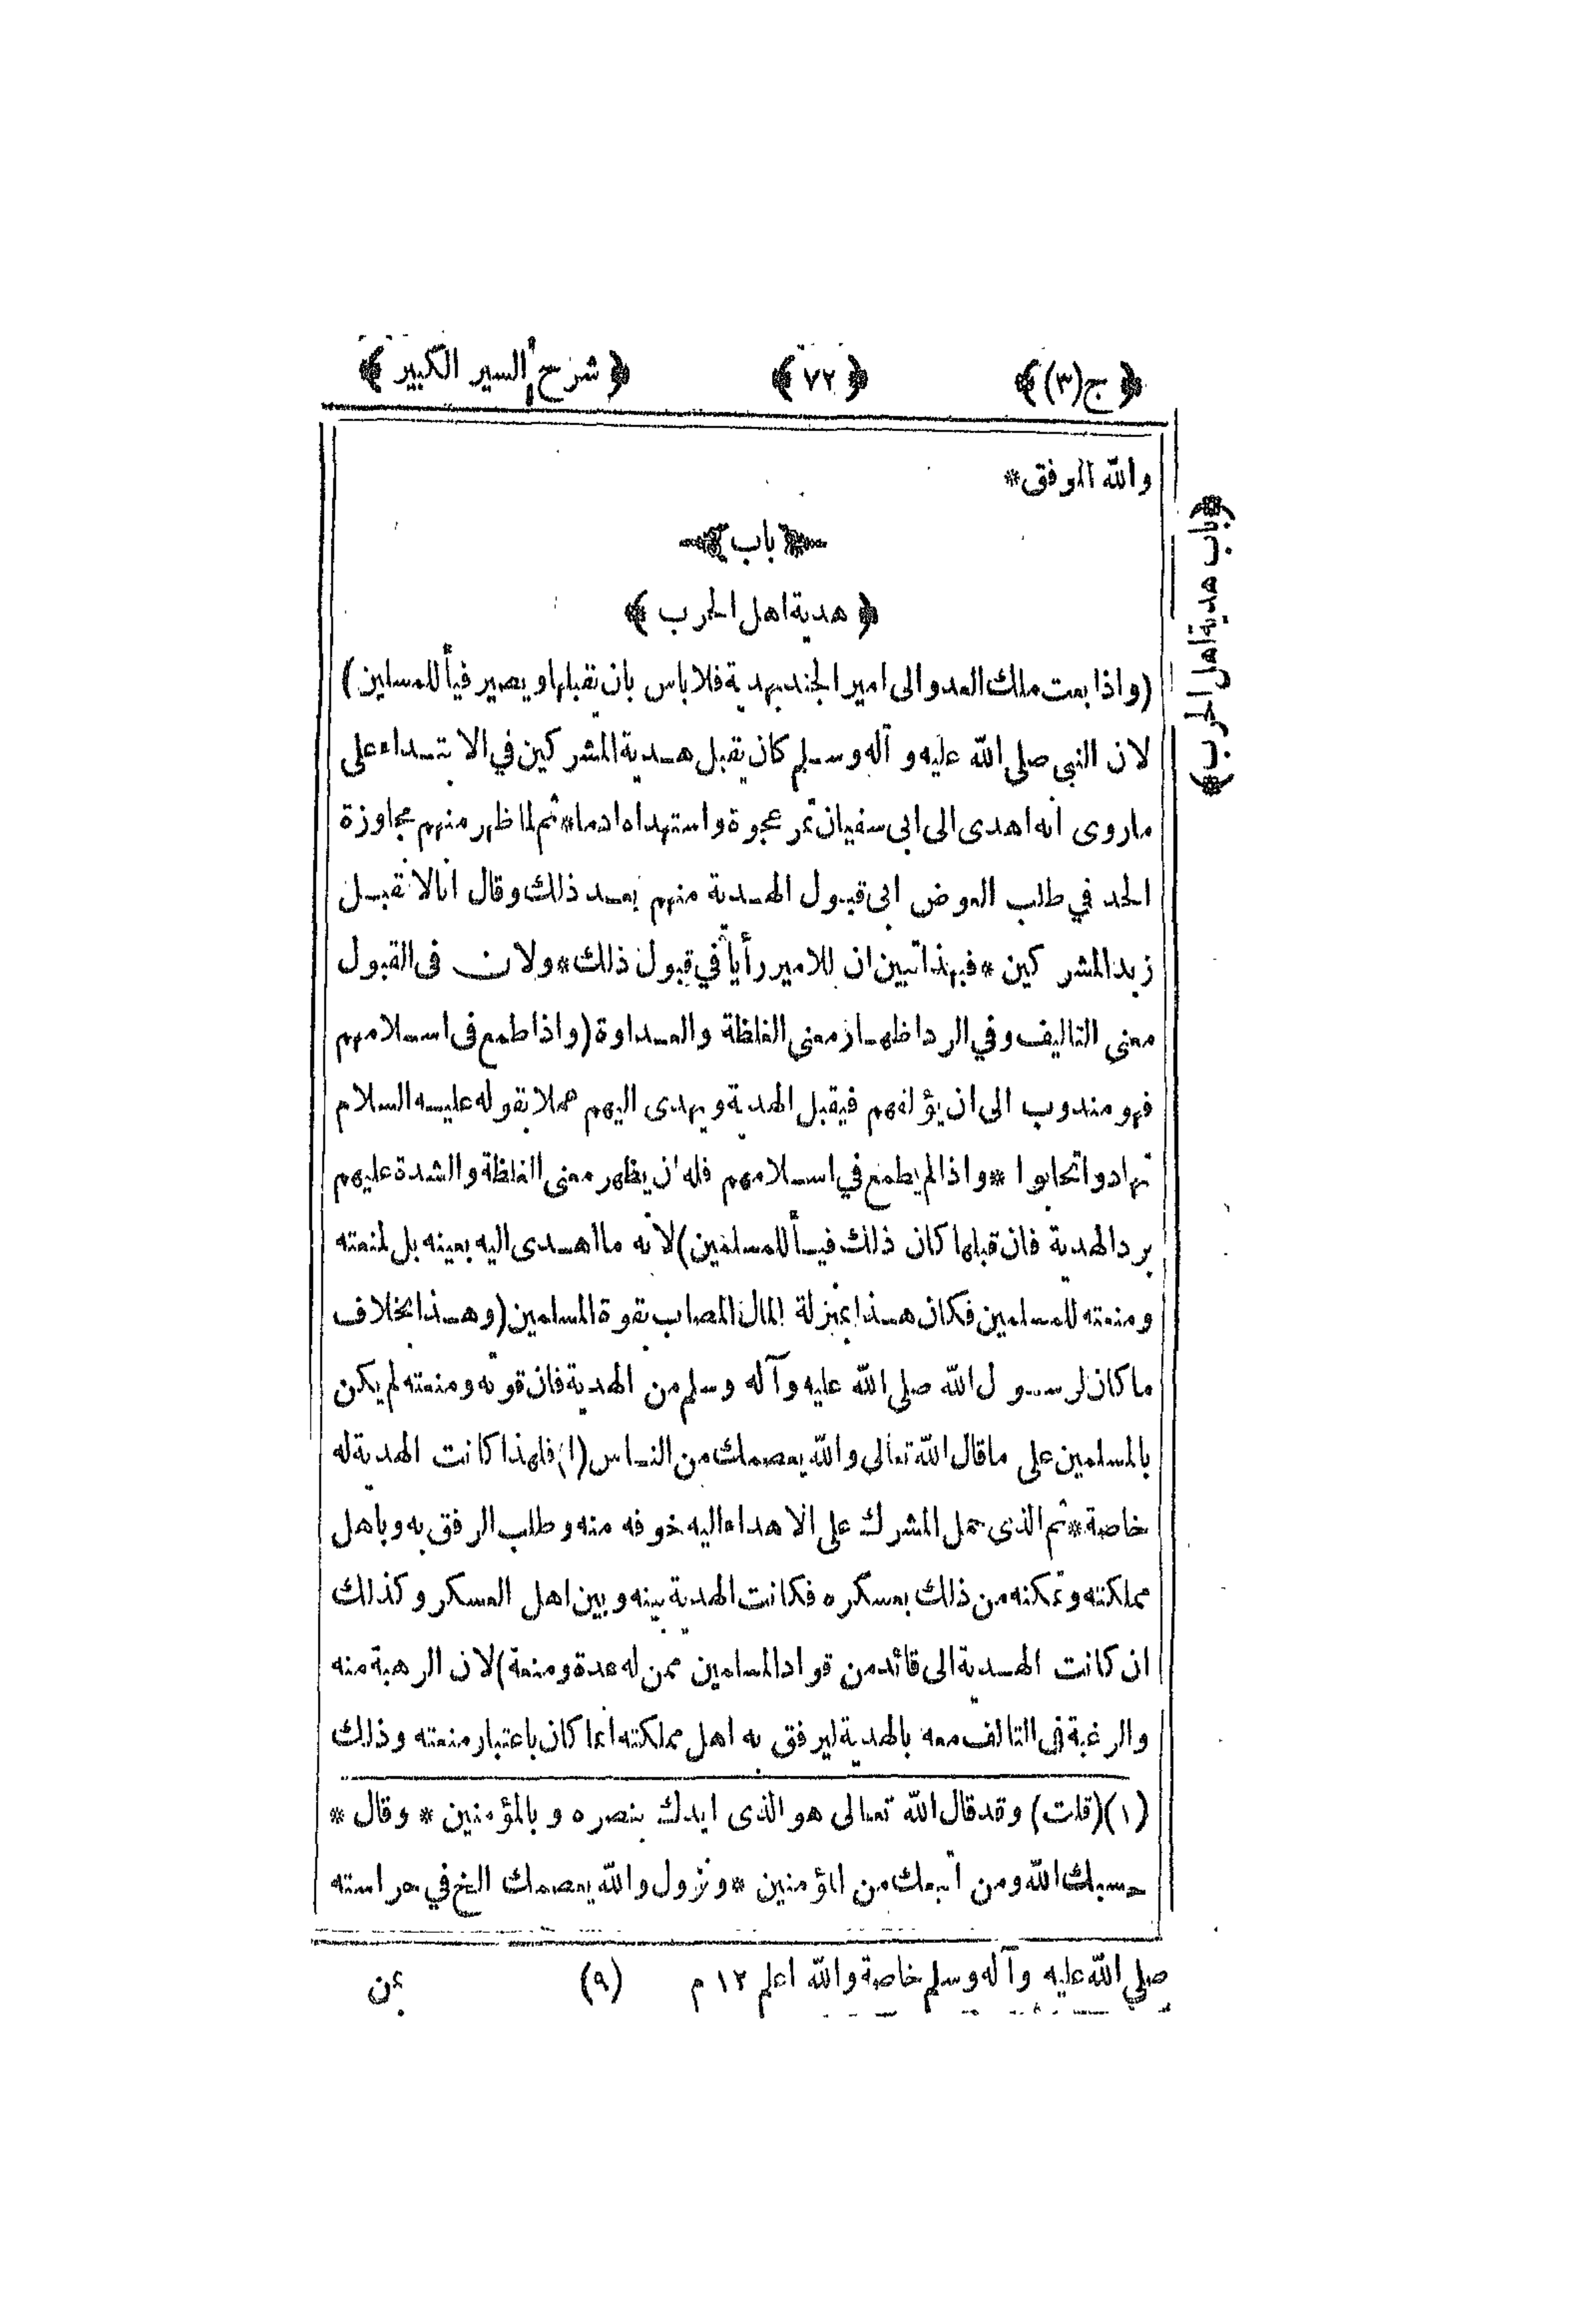 ﴿ ج(٣) ﴾ ﴿ ٧٢ ﴾ ﴿ شرح السير الكبير ﴾
والله الموفق *
﴿ باب ﴾
﴿ هدية اهل الحرب ﴾
﴿ باب هدية اهل الحرب ﴾
(واذا بعث ملك العدو الى امير الجند بهدية فلا باس بان يقبلها ويصير فيأ للمسلمين)
لان النبي صلى الله عليه و آله وسلم كان يقبل هدية المشركين في الابتداء على
ماروى انه اهدى الى ابى سفيان تمر عجوة واستهداه ادما * ثم لما ظهر منهم مجاوزة
الحد في طلب العوض ابى قبول الهدية منهم بعد ذلك وقال انا لا نقبل
زبد المشركين * فبهذا تبين ان للامير رأياً في قبول ذلك * ولان فى القبول
معنى التاليف وفي الرد اظهار معنى الغلظة والعداوة (واذا طمع فى اسلامهم
فهو مندوب الى ان يؤلفهم فيقبل الهدية ويهدى اليهم عملا بقوله عليه السلام
تهادوا تحابوا * واذا لم يطمع في اسلامهم فله ان يظهر معنى الغلظة والشدة عليهم
برد الهدية فان قبلها كان ذلك فيأ للمسلمين) لانه ما اهدى اليه بعينه بل لمنعته
ومنعته للمسلمين فكان هذا بمنزلة المال المصاب بقوة المسلمين (وهذا بخلاف
ما كان لرسول الله صلى الله عليه وآله وسلم من الهدية فان قوته ومنعته لم يكن
بالمسلمين على ماقال الله تعالى والله يعصمك من الناس (١) فلهذا كانت الهدية له
خاصة * ثم الذى حمل المشرك على الاهداء اليه خوفه منه وطلب الرفق به وباهل
مملكته وتمكنه من ذلك بعسكره فكانت الهدية بينه وبين اهل العسكر وكذلك
ان كانت الهدية الى قائد من قواد المسلمين ممن له عدة ومنعة) لان الرهبة منه
والرغبة في التالف معه بالهدية ليرفق به اهل مملكته انما كان باعتبار منعته وذلك
(١) (قلت) وقد قال الله تعالى هو الذى ايدك بنصره و بالمؤمنين * وقال *
حسبك الله ومن اتبعك من المؤمنين * ونزول والله يعصمك الخ في حراسته
صلى الله عليه وآله وسلم خاصة والله اعلم ١٢ م (٩)